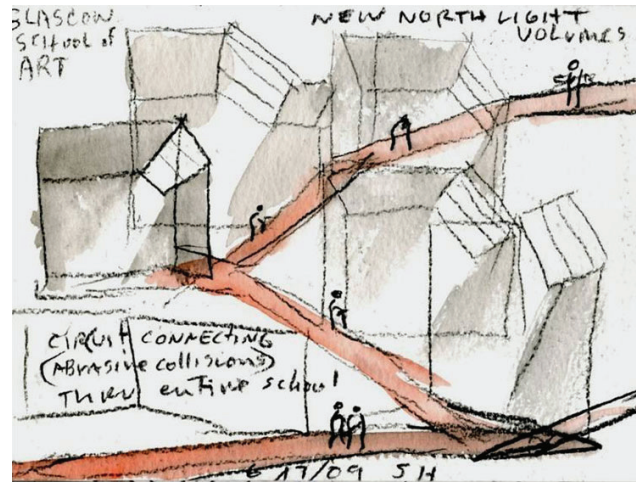 GLASGOW
SCHOOL of
ART
NEW NORTH LIGHT
VOLUMES
CIRCUIT CONNECTING
(ABRASIVE COLLISIONS)
THRU entire school
6 17/09 SH